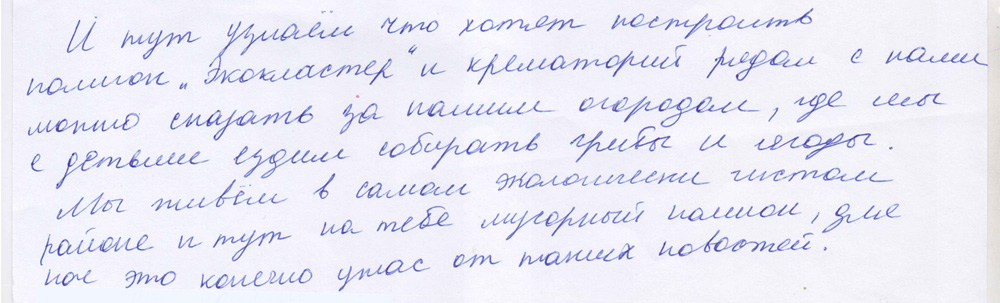 И тут узнаём что хотят построить
полигон „Экокластер" и крематорий рядом с нами
можно сказать за нашим огородом, где мы
с детьми ездим собирать грибы и ягоды.
Мы живём в самом экологически чистом
районе и тут на тебе мусорный полигон, для
нас это конечно ужас от таких новостей.